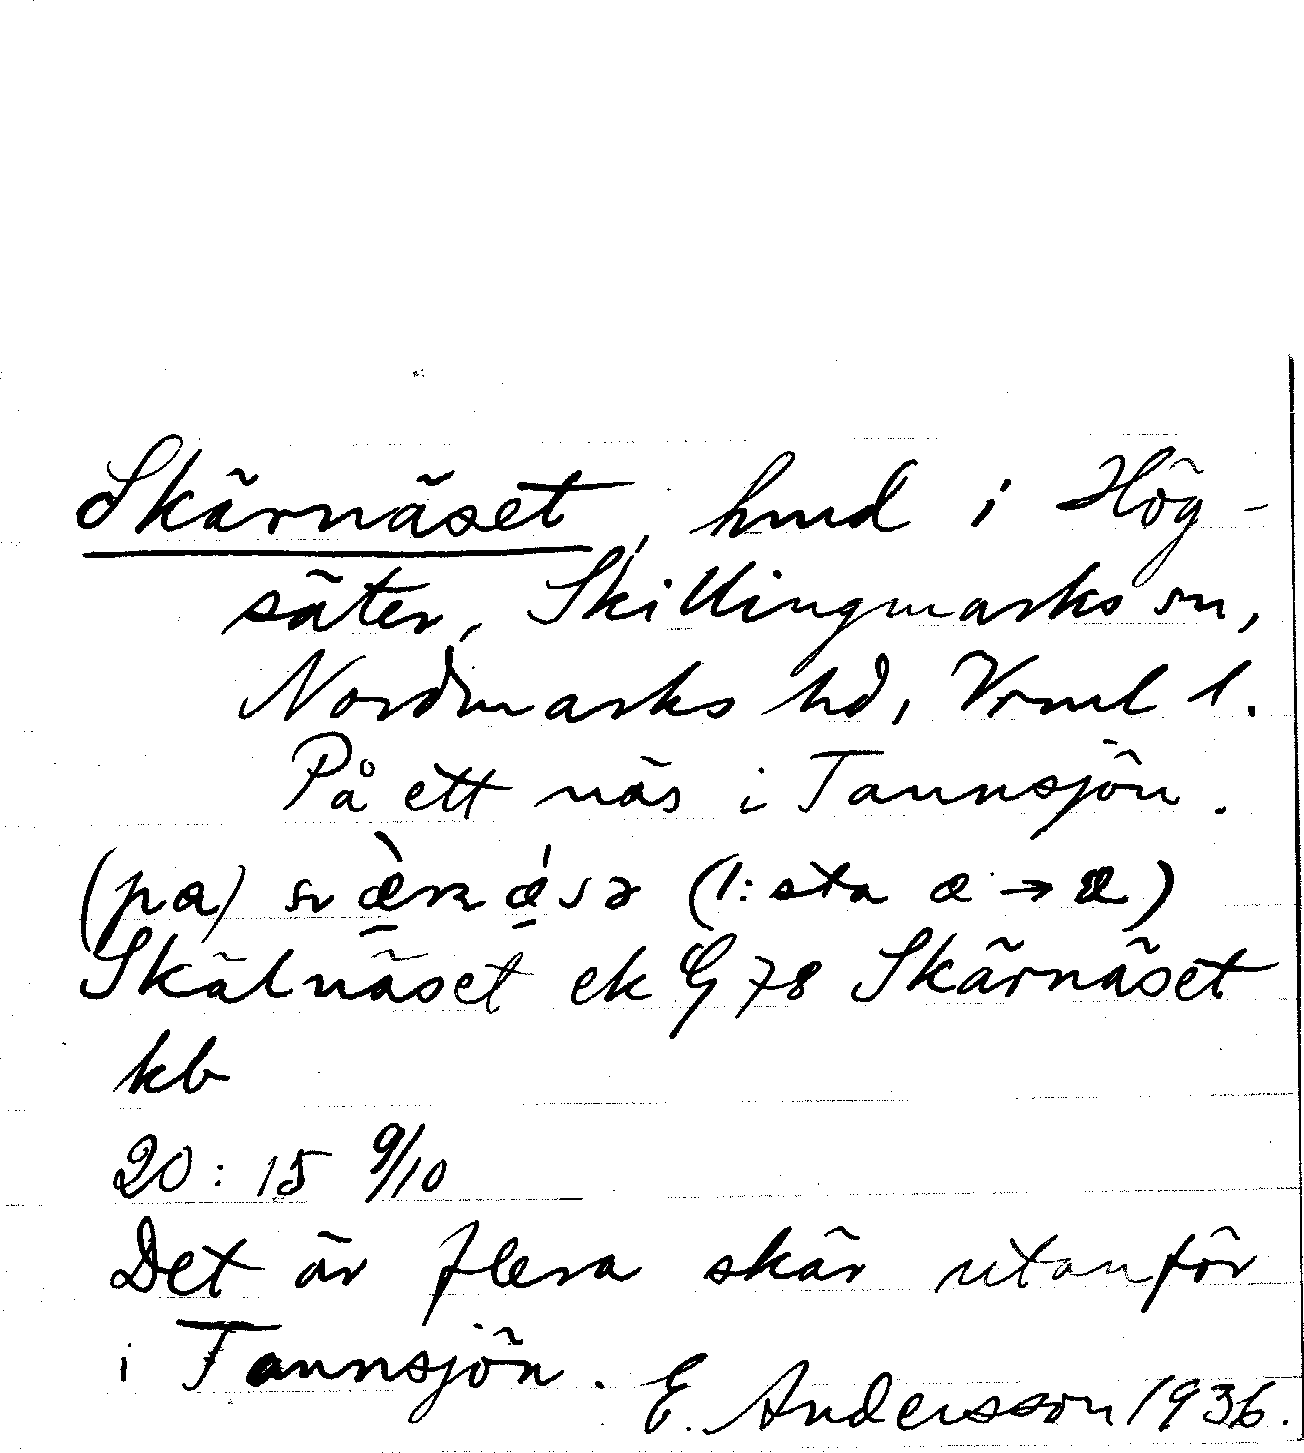 Skärnäset, hmd i Hög-
säter, Skillingmarks sn,
Nordmarks hd, Vrml l.
På ett näs i Tannsjön.
(pa) (1:sta æ → æ)
Skälnäset ek G 78 Skärnäset
kb
20:15 9/10
Det är flera skär utanför
i Tannsjön.
E. Andersson 1936.